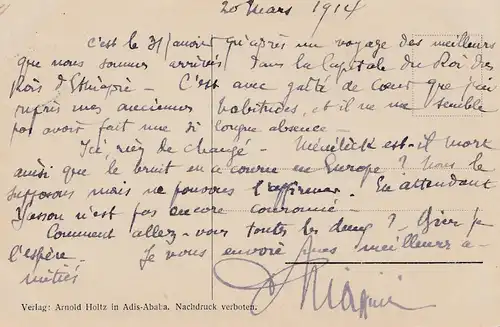 20 Mars 1914
C'est le 31 janvier qu'après un voyage des meilleurs
que nous sommes arrivés dans la Capitale du Roi des
Rois d'Ethiopie — C'est avec gaîté de cœur que j'ai
repris mes anciennes habitudes, et il ne me semble
pas avoir fait une si longue absence —
Ici, rien de changé — Ménélick est-il mort
ainsi que le bruit en a couru en Europe ? Nous le
supposons mais ne pouvons l'affirmer. En attendant
Yassou n'est pas encore couronné —
Comment allez-vous toutes les deux ? Bien je
l'espère. Je vous envoie mes meilleurs a-
mitiés
Verlag: Arnold Holtz in Adis-Ababa. Nachdruck verboten.